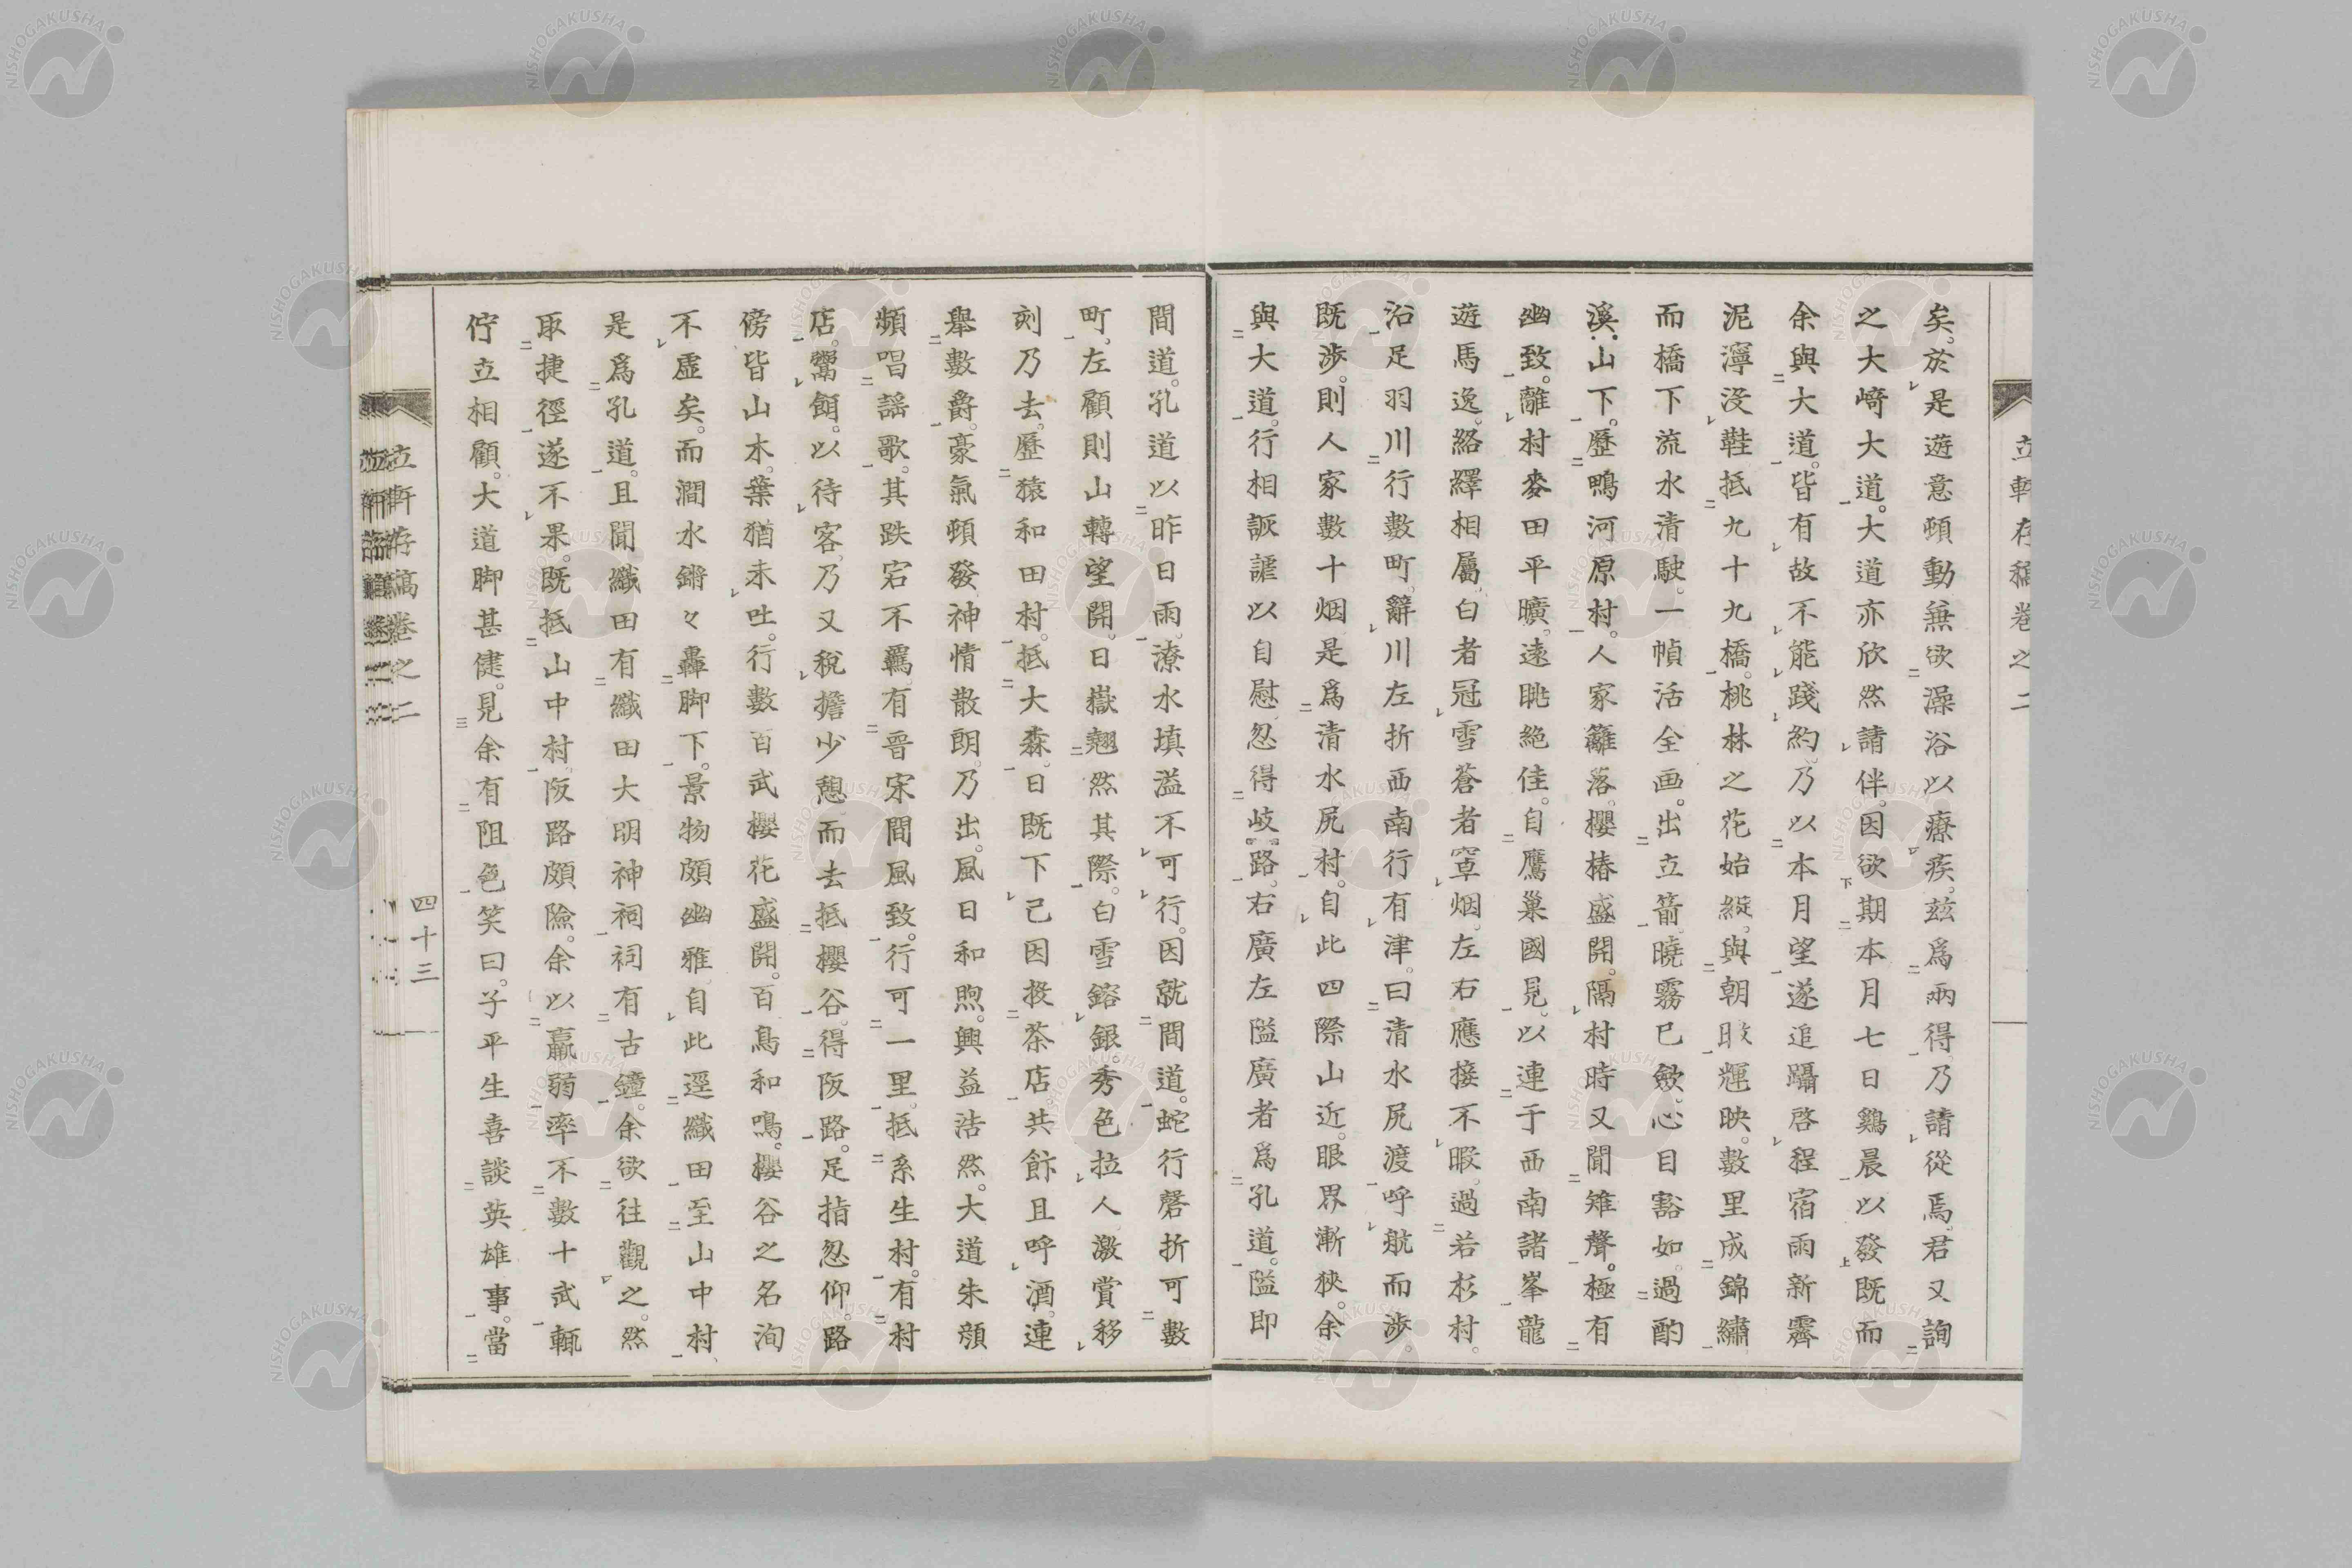 立軒存稿卷之二
矣。於是遊意頓動兼欲澡浴以療疾。茲爲兩得。乃請從焉。君又詢
之大﨑大道。大道亦欣然請伴。因欲期本月七日鷄晨以發既而
余與大道。皆有故不能踐約。乃以本月望遂追躡啓程宿雨新霽
泥濘没鞋抵九十九橋。桃林之花始綻。與朝暾輝映。數里成錦繡
而橋下流水清駛。一幀活全画。出立箭。曉霧已斂。心目豁如。過酌
溪。山下。歷鴨河原村。人家籬落。櫻椿盛開。隔村時又聞雉聲。極有
幽致。離村麥田平曠。遠眺絶佳。自鷹巢國見。以連于西南諸峯龍
遊馬逸。絡繹相屬。白者冠雪蒼者罩烟。左右應接不暇。過若杉村。
沿足羽川行數町。辭川左折西南行有津。曰清水尻渡呼航而渉。
既渉。則人家數十烟是爲清水尻村。自此四際山近。眼界漸狹。余
與大道。行相詼謔以自慰忽得岐路。右廣左隘廣者爲孔道。隘即
間道。孔道以昨日雨。潦水填溢不可行。因就間道。蛇行磬折可數
町。左顧則山轉望開。日嶽翹然其際。白雪鎔銀。秀色拉人激賞移
刻乃去。歷猿和田村。抵大森。日既下己因投茶店共飰且呼酒。連
舉數爵。豪氣頓發神情散朗。乃出。風日和煦。興益浩然。大道朱顔
頻唱謡歌。其跌宕不羈。有晋宋間風致。行可一里。抵糸生村。有村
店。鬻餌。以待客。乃又税擔少憩。而去抵櫻谷。得阪路。足指忽仰。路
傍皆山木。葉猶未吐。行數百武櫻花盛開。百鳥和鳴。櫻谷之名洵
不虚矣。而澗水鏘々轟脚下。景物頗幽雅。自此逕纖田至山中村。
是爲孔道。且聞纖田有纖田大明神祠祠有古鐘。余欲往觀之。然
取捷徑遂不果。既抵山中村。阪路頗險。余以羸弱率不數十武輒
佇立相顧。大道脚甚健。見余有阻色笑曰。子平生喜談英雄事。當
立軒存稿卷之二
四十三